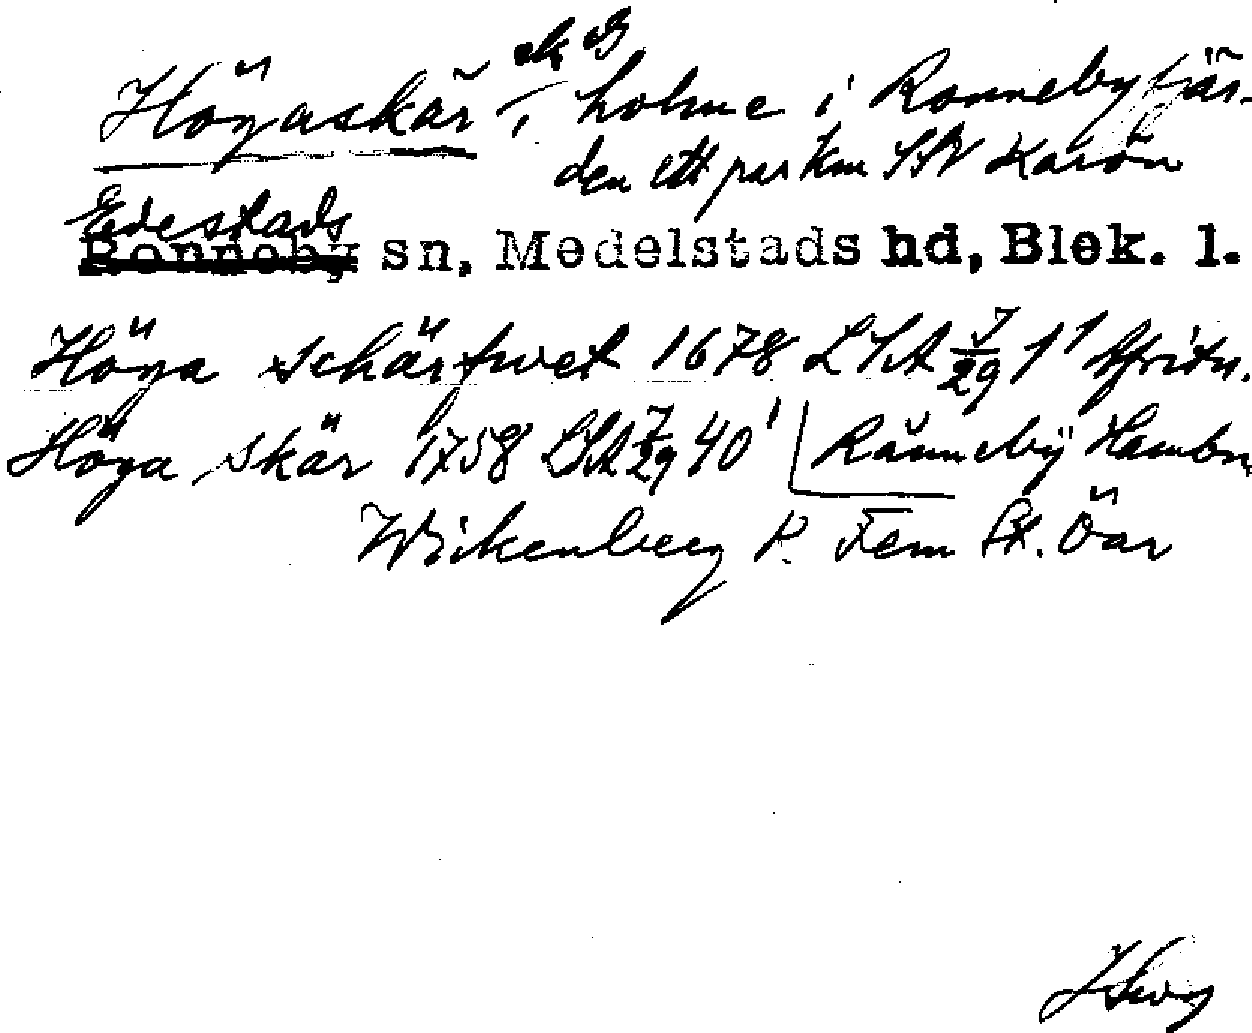 ek B
Högaskär, holme i Ronnebyfjär-
den ett par km SSV Karön
Edestads
Ronneby sn, Medelstads hd, Blek. l.
Höga schärfwet 1678 LSA 7/29 1¹ Afritn.
Höga skär 1758 LSA 7/29 40¹ Rånneby Hambn
Wirkenberg P. Fem St. Öar